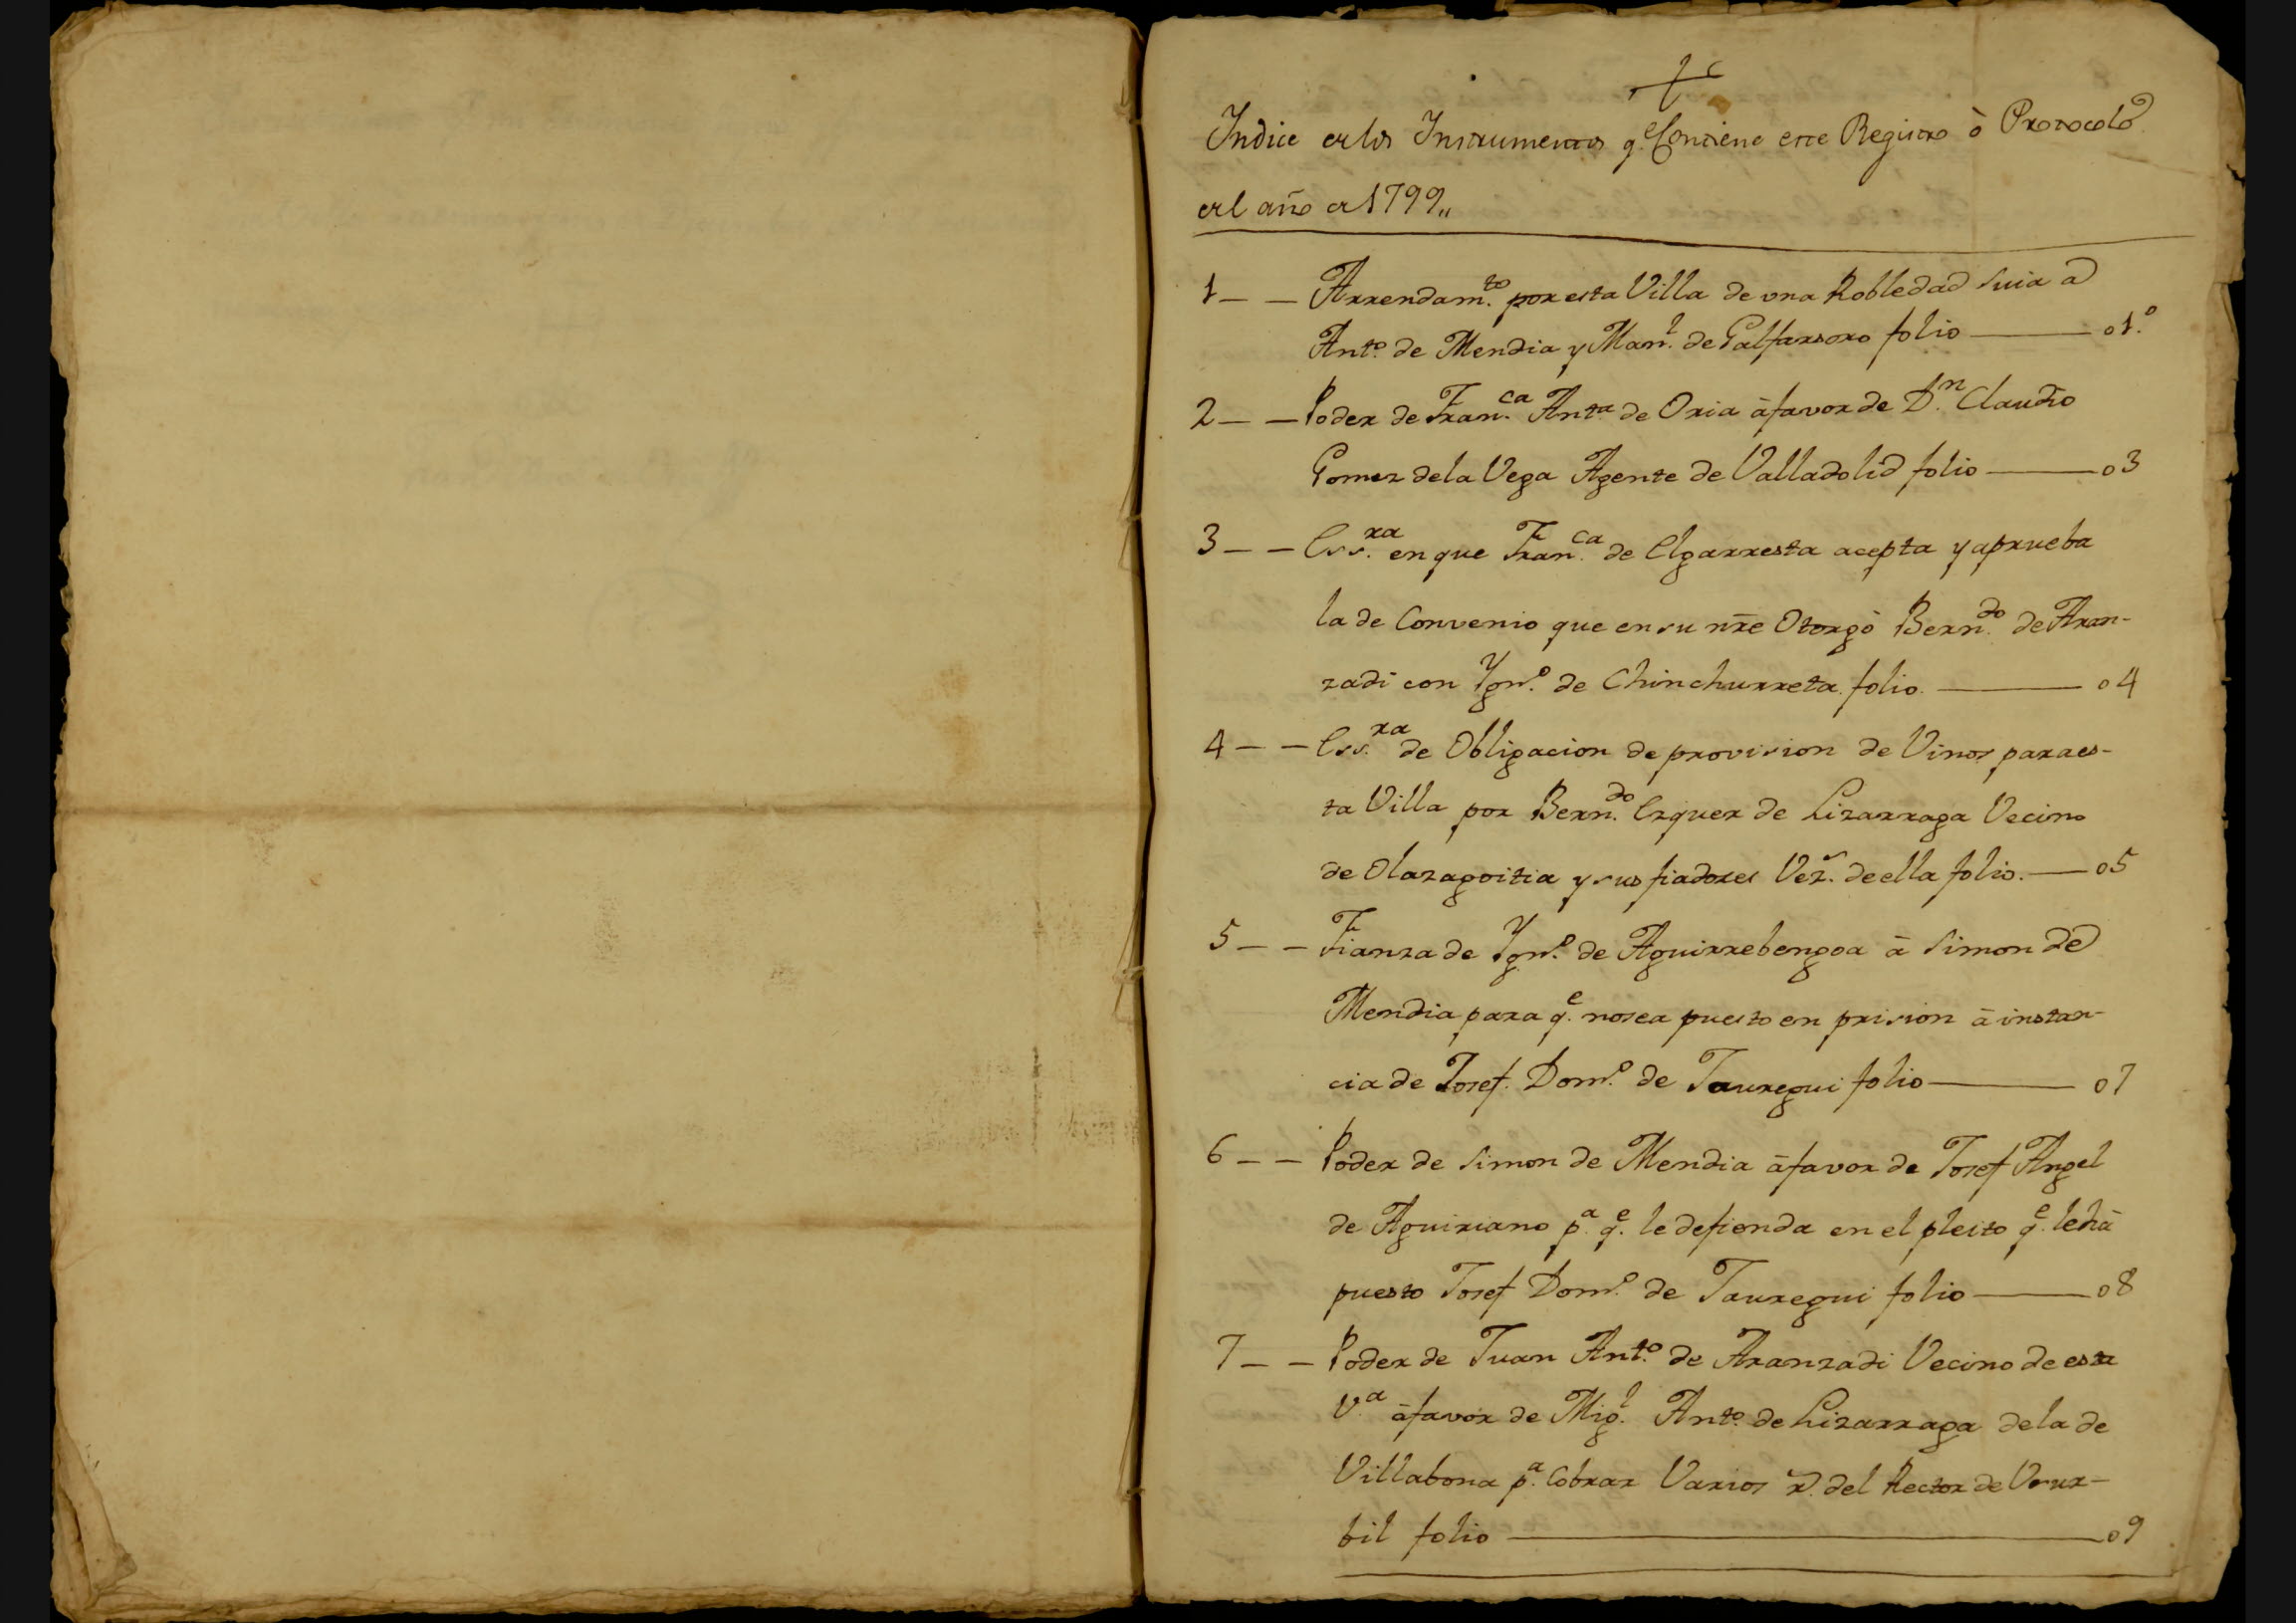 Indice de los Instrumentos q.e Contiene este Registro ò Protocolo
del año de 1799,,
1 — — Arrendam.to por esta Villa de vna Robledad suia a
Ant.o de Mendia y Man.l de Galfarsoro folio ——— 01.o
2 — — Poder de Fran.ca Ant.a de Oria à favor de D.n Claudio
Gomez dela Vega Agente de Valladolid folio ——— 03
3 — — Ess.ra en que Fran.ca de Elgarresta acepta y aprueba
la de Convenio que en su nre Otorgò Bern.do de Aran-
zadi con Ygn.o de Chinchurreta folio. ——— 04
4 — — Ess.ra de Obligacion de provision de Vinos para es-
ta Villa por Bern.do Ezquer de Lizarraga Vecino
de Olazagoitia y sus fiadores Vez.s de ella folio. — 05
5 — — Fianza de Ygn.o de Aguirrebengoa à Simon de
Mendia para q.e no sea puesto en prision à instan-
cia de Josef Dom.o de Jauregui folio ——— 07
6 — — Poder de Simon de Mendia à favor de Josef Angel
de Aguiriano p.a q.e le defienda en el pleito q.e le hà
puesto Josef Dom.o de Jauregui folio ——— 08
7 — — Poder de Juan Ant.o de Aranzadi Vecino de esta
V.a à favor de Mig.l Ant.o de Lizarraga dela de
Villabona p.a Cobrar Varios r.s del Rector de Vsur-
bil folio ——— 09